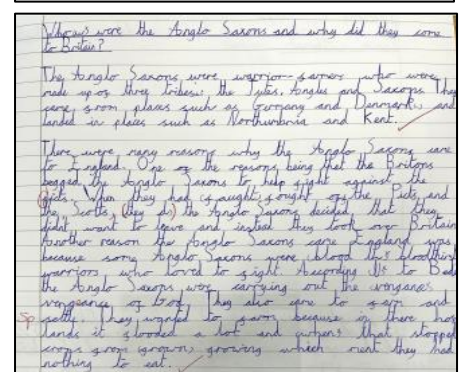 Who were the Anglo Saxons and why did they come
to Britain?
The Anglo Saxons were warrior-famers who were
made up of three tribes: the Jutes, Angles and Saxons. They
came from places such as Germany and Denmark, and
landed in places such as Northumbria and Kent.
There were many reasons why the Anglo Saxons came
to England. One of the reasons being that the Britons
begged the Anglo Saxons to help fight against the
Picts. When they had fought off the Picts and
the Scotts, the Anglo Saxons decided that they
didnt want to leave and instead they took over Britain
Another reason the Anglo Saxons came England was
because some Anglo Saxons were blood bloodthirsty
warriors who loved to fight. According to Bede
the Anglo Saxons were carrying out the
vengeance of God. They also came to farm and
Sp settle. They wanted to farm because in there
lands it flooded a lot and that stopped
crops from growing which ment they had
nothing to eat.